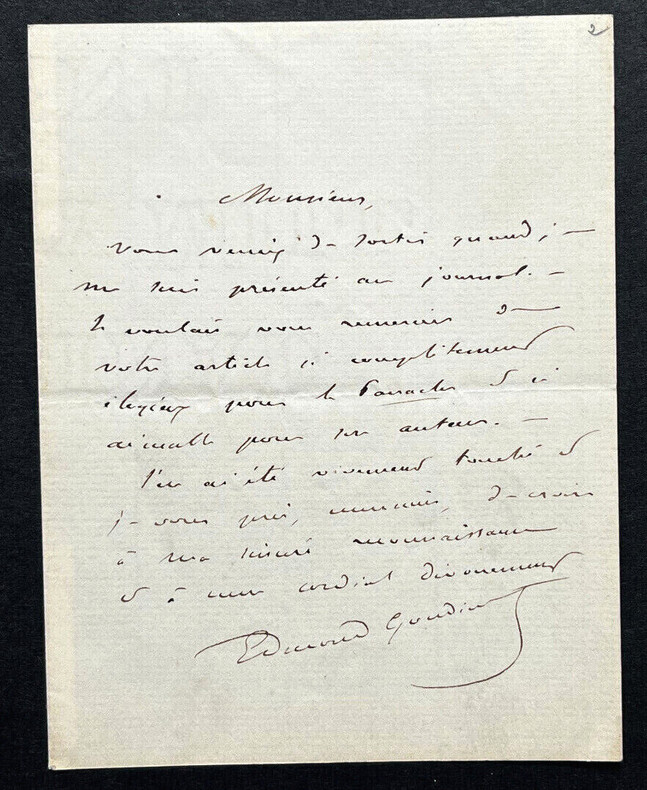 2
Monsieur,
Vous veniez de sortir quand je
me suis présenté au journal. —
Je voulais vous remercier de
votre article si complètement
élogieux pour le Panache et si
aimable pour son auteur. —
J'en ai été vivement touché et
je vous prie, monsieur, de croire
à ma sincère reconnaissance
et à mon cordial dévouement
Edmond Gondinet